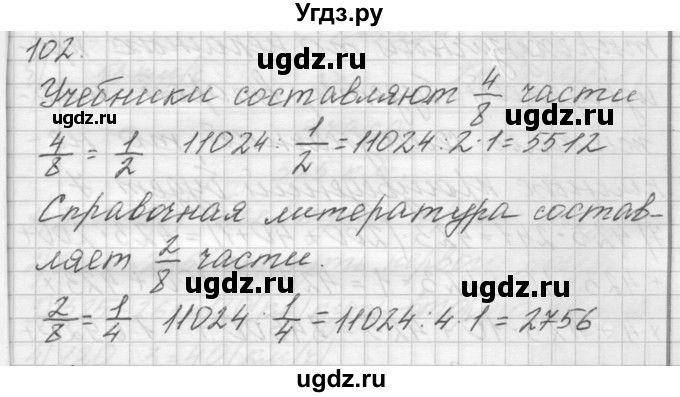 Угдз.ру
102.
Учебники составляют 4/8 части
4/8 = 1/2 11024 : 1/2 = 11024 : 2 · 1 = 5512
Справочная литература состав-
ляет 2/8 части.
2/8 = 1/4 11024 · 1/4 = 11024 : 4 · 1 = 2756
ugdz.ru
ugdz.ru
ugdz.ru
ugdz.ru
ugdz.ru
ugdz.ru
ugdz.ru